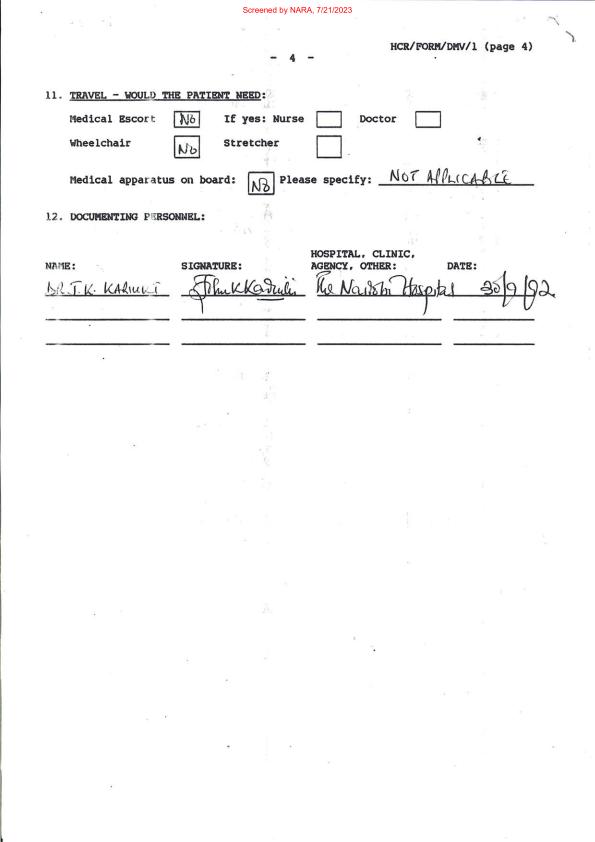 Screened by NARA, 7/21/2023
HCR/FORM/DMV/1 (page 4)
- 4 -
11. TRAVEL - WOULD THE PATIENT NEED:
Medical Escort No If yes: Nurse Doctor
Wheelchair No Stretcher
Medical apparatus on board: No Please specify: NOT APPLICABLE
12. DOCUMENTING PERSONNEL:
HOSPITAL, CLINIC,
NAME: SIGNATURE: AGENCY, OTHER: DATE:
DR. J.K. KARIUKI John K Kariuki The Nairobi Hospital 30/9/92